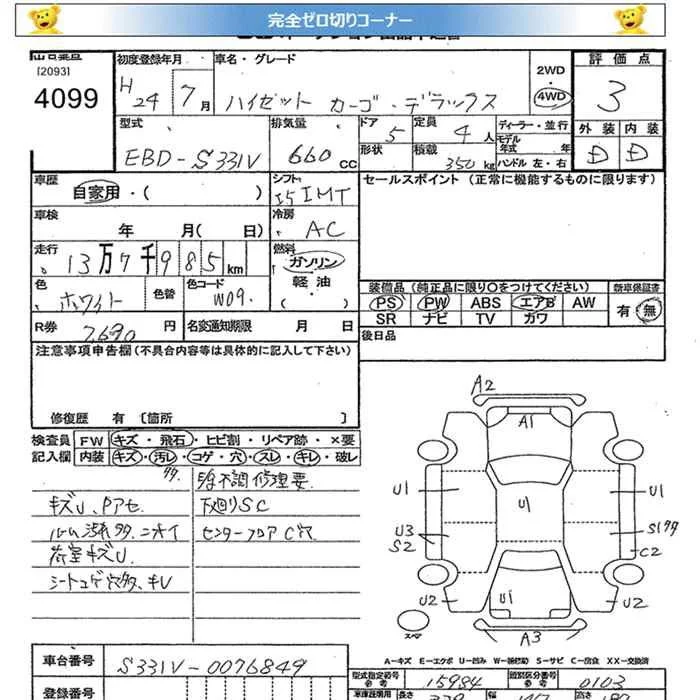 完全ゼロ切りコーナー
[2093]
4099
初度登録年月
H 24 7月
車名・グレード
ハイゼット カーゴ・デラックス
2WD
4WD
評価点
3
外装 内装
D D
型式
EBD-S331V
排気量
660 CC
ドア 5
形状
定員 4人
積載 350 kg
ディーラー・並行
モデル
年式 年
ハンドル 左・右
車歴
自家用・( )
シフト
I5 MT
セールスポイント (正常に機能するものに限ります)
車検
年 月( 日)
冷房
AC
走行
13万7千985km
燃料
ガソリン
軽油
( )
色
ホワイト
色替
色コード
W09
装備品 (純正品に限り○をつけてください)
新車保証書
PS PW ABS エアB AW
SR ナビ TV カワ
有・無
R券
7,690円
名変通知期限 月 日
後日品
注意事項申告欄 (不具合内容等は具体的に記入して下さい)
修復歴 有 [箇所 ]
検査員
記入欄
FW キズ・飛石・ヒビ割・リペア跡・×要
内装 キズ・汚レ・コゲ・穴・スレ・キレ・破レ
キズU、Pアセ
下廻りSC
センターフロア C穴
荷室キズU
A2
A1
U1
U1
U1
U3
S2
C2
U2
U1
U2
A3
スペア
A-キズ E-エクボ U-凹み W-補修跡 S-サビ C-腐食 XX-交換済
車台番号
S331V-0076849
型式指定番号
参考
15984
類別区分番号
参考
0103
登録番号